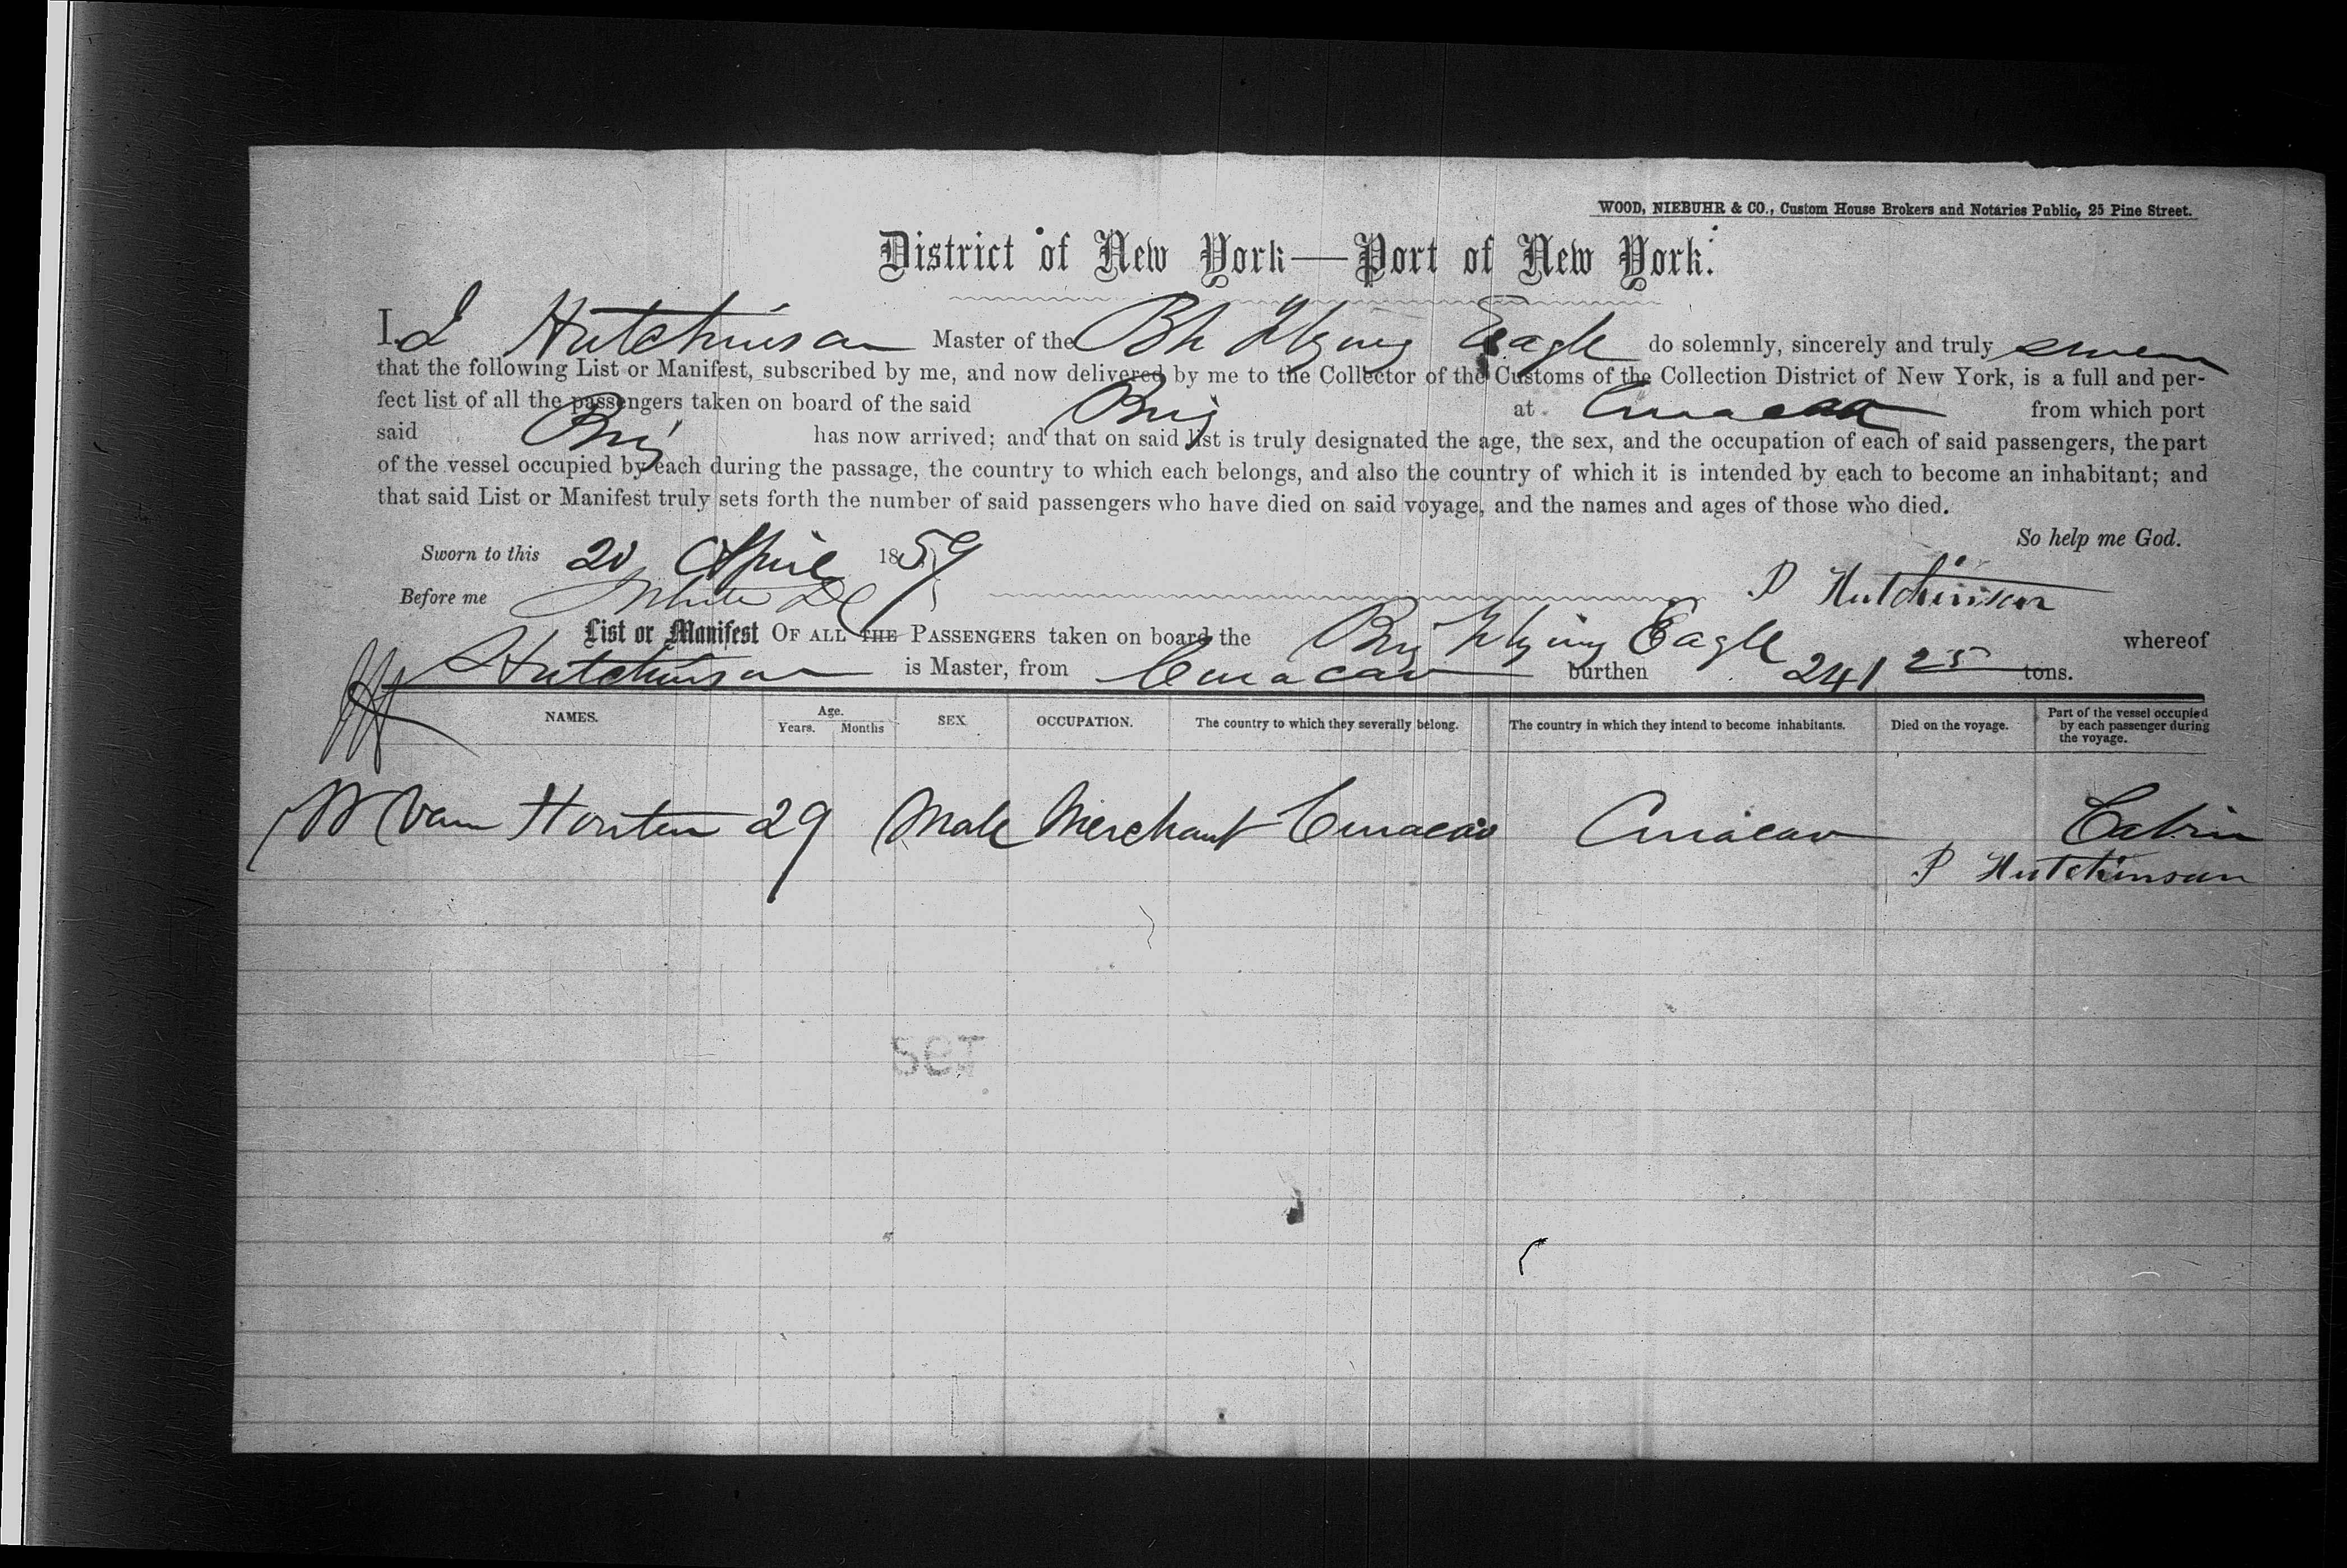 WOOD, NIEBUHR & CO., Custom House Brokers and Notaries Public, 25 Pine Street.
District of New York—Port of New York.
I. Hutchinson Master of the Flying Eagle do solemnly, sincerely and truly swear
that the following List or Manifest, subscribed by me, and now delivered by me to the Collector of the Customs of the Collection District of New York, is a full and per-
fect list of all the passengers taken on board of the said Brig at Curacao from which port
said Brig has now arrived; and that on said list is truly designated the age, the sex, and the occupation of each of said passengers, the part
of the vessel occupied by each during the passage, the country to which each belongs, and also the country of which it is intended by each to become an inhabitant; and
that said List or Manifest truly sets forth the number of said passengers who have died on said voyage, and the names and ages of those who died.
So help me God.
Sworn to this 20 April 1859
Before me P Hutchinson
List or Manifest OF ALL THE PASSENGERS taken on board the Brig Flying Eagle whereof
Hutchinson is Master, from Curacao burthen 241 25 tons.
NAMES. Age. Years. Months SEX OCCUPATION. The country to which they severally belong. The country in which they intend to become inhabitants. Died on the voyage. Part of the vessel occupied by each passenger during the voyage.
W Van Houten 29 Male Merchant Curacao Curacao Cabin
P Hutchinson